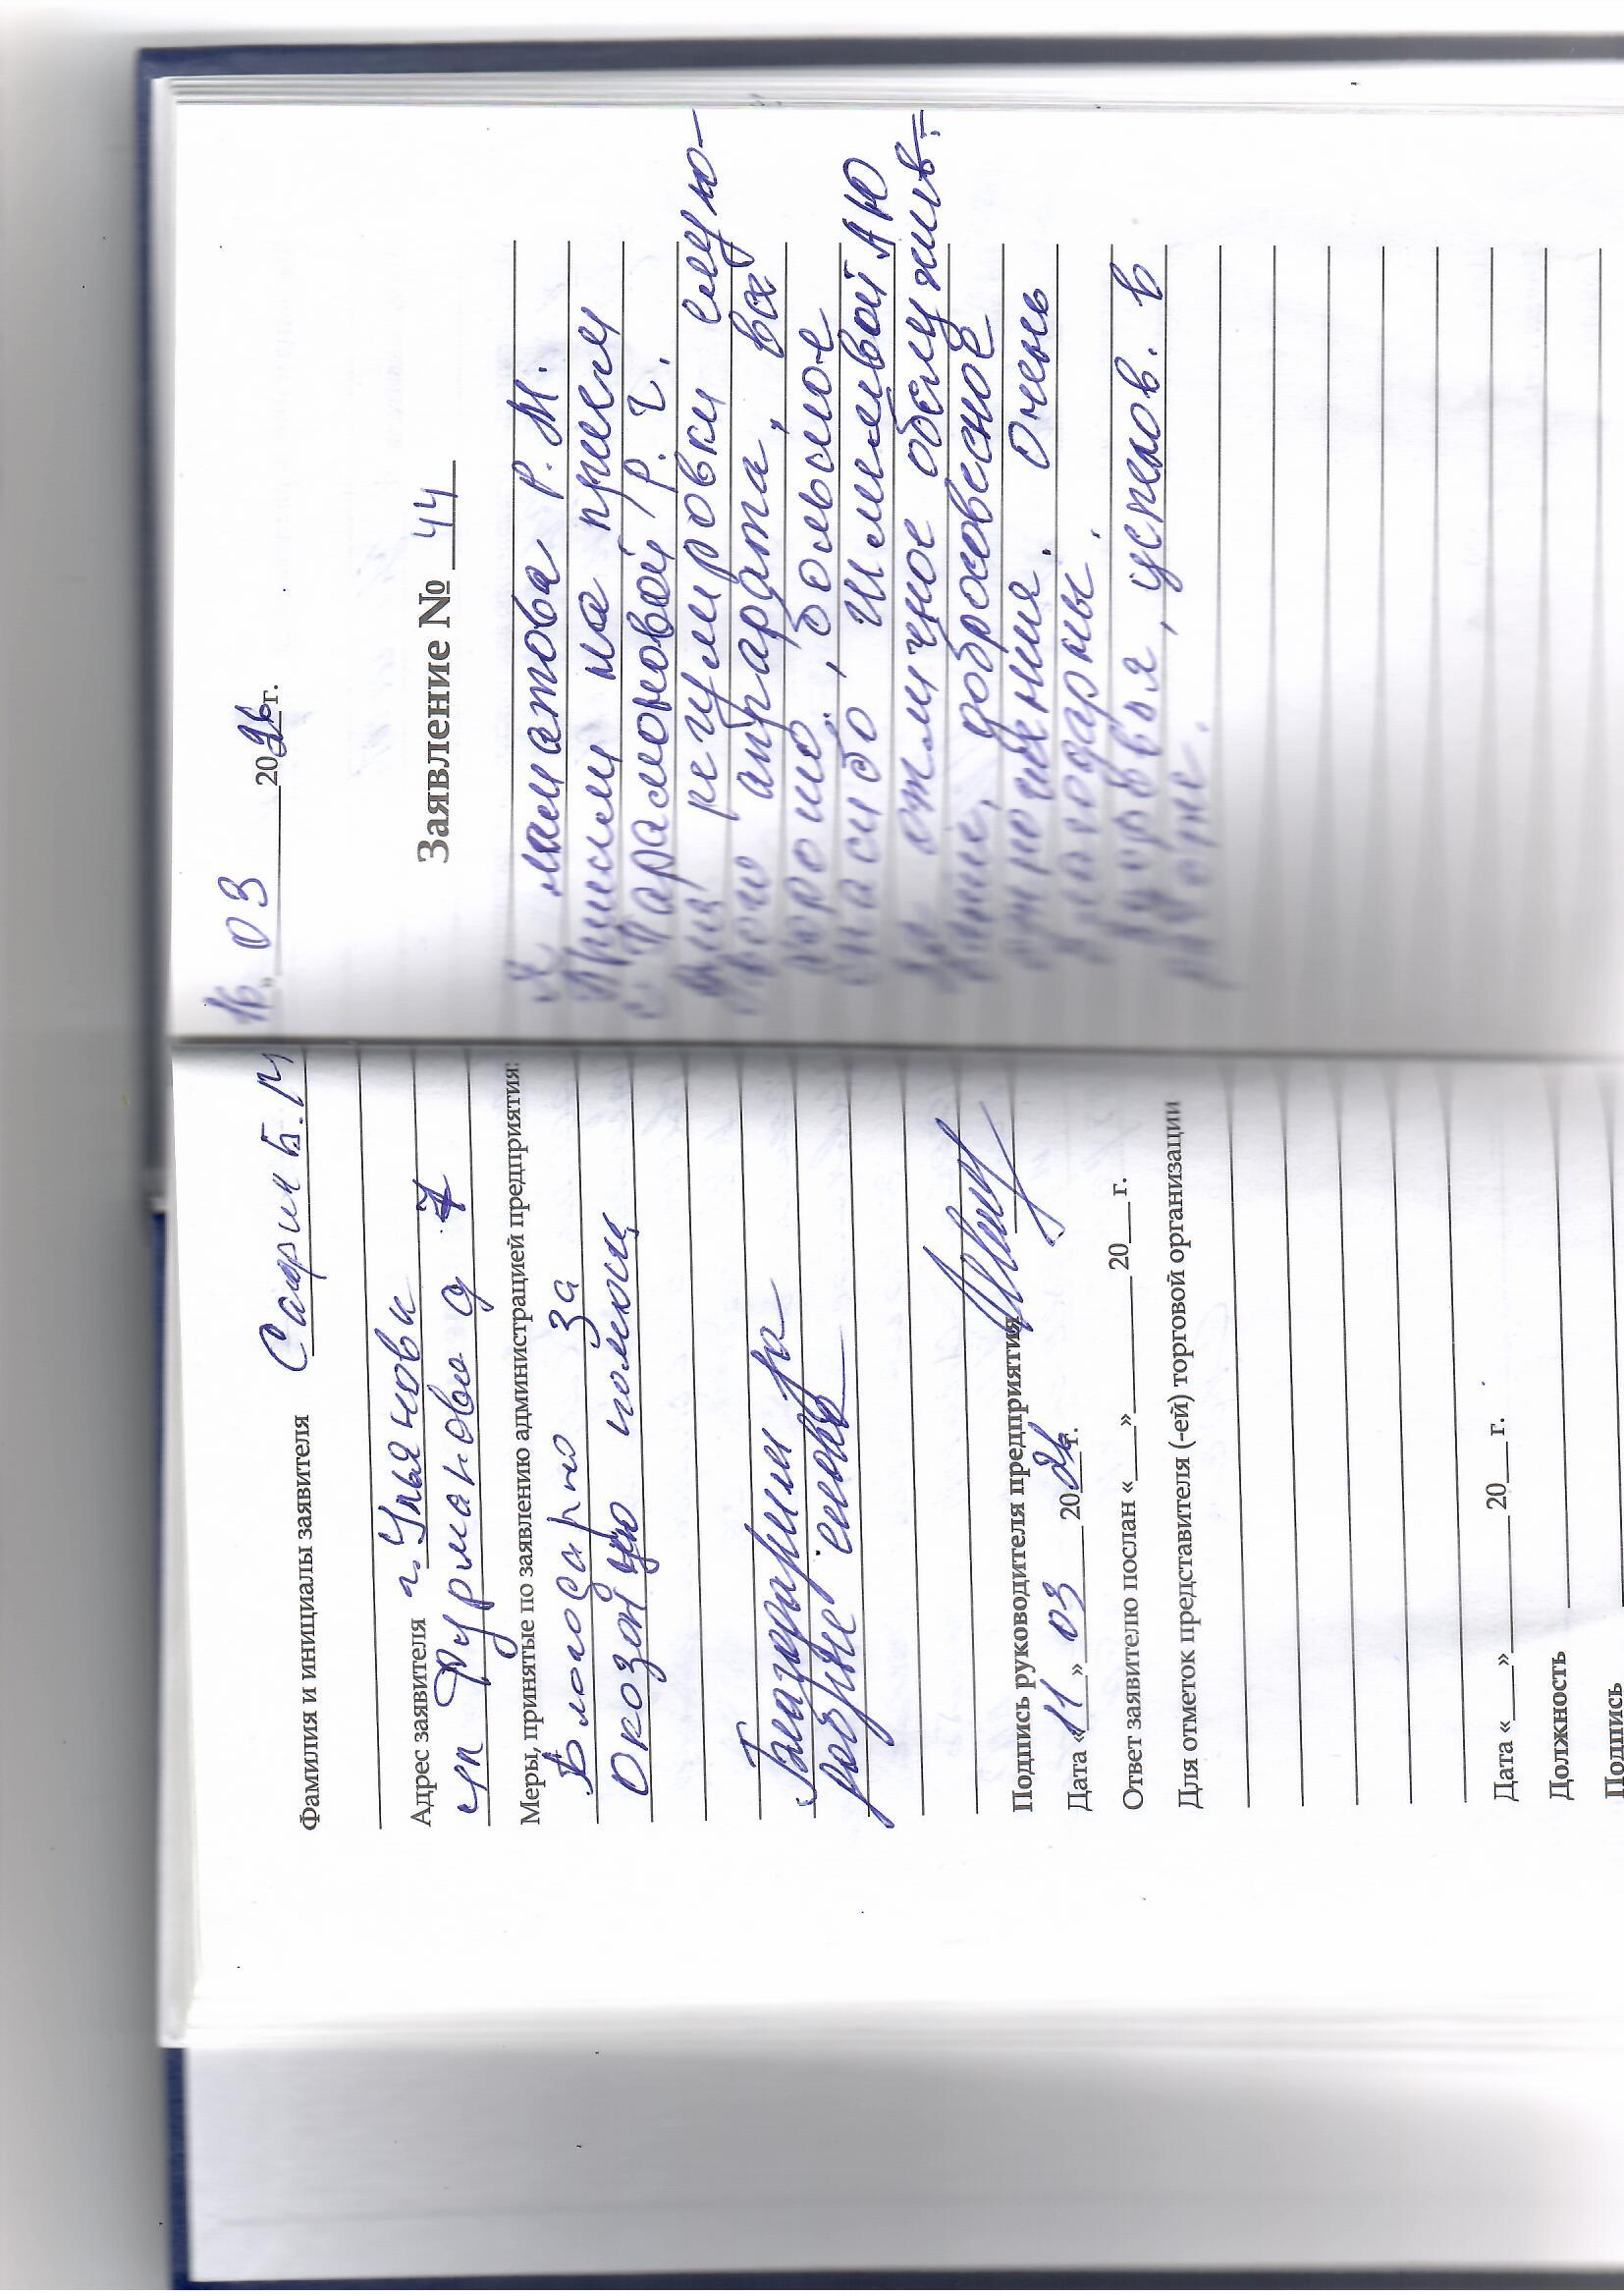 Фамилия и инициалы заявителя Сафин Б.М
Адрес заявителя г. Ульяновк
ул Фурманова д 7
Меры, принятые по заявлению администрацией предприятия:
Благодарно за
Оказанную помощ
Благодарим за
добрые слова
Подпись руководителя предприятия
Дата «11» 03 2026г.
Ответ заявителю послан «___»________20___г.
Для отметок представителя (-ей) торговой организации
Дата «___»________20___г.
Должность
Подпись
16. 03 2026г.
Заявление № 44
Я Маматова Р. М.
Пришли на прием
с Парамоновой Р. Г.
для регулировки слухо-
вого аппарата, все
хорошо, большое
спасибо Шмелёвой АЮ
за отличное обслужив-
ание, добросовесное
отношения. Очень
благодарны.
Здоровья, успехов. в
работе.